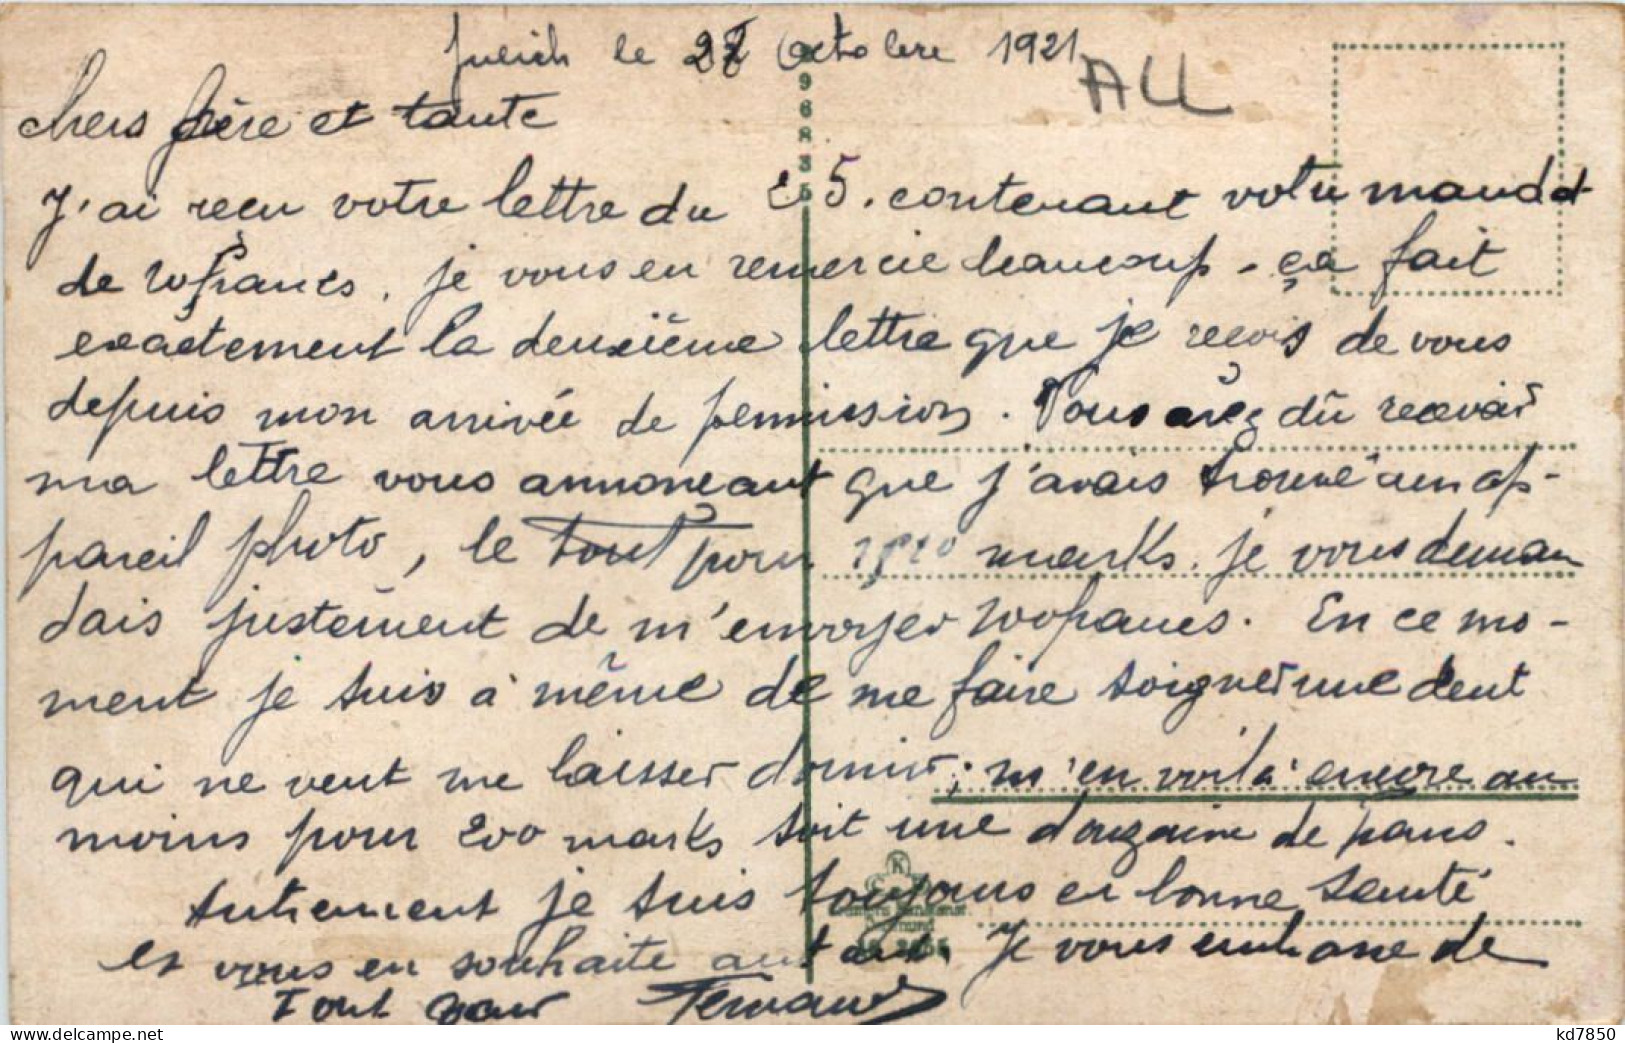 Julich le 27 Octobre 1921
ALL
Chers frère et tante
J'ai reçu votre lettre du 25. contenant votre mandat
de 10francs. je vous en remercie beaucoup - ça fait
exactement la deuxième lettre que je reçois de vous
depuis mon arrivée de permission. Vous avez dû recevoir
ma lettre vous annonçant que j'avais trouvé un ap-
pareil photo, le tout pour marks. je vous deman
dais justement de m'envoyer 100francs. En ce mo-
ment je suis à même de me faire soigner une dent
qui ne veut me laisser dormir; m'en voilà encore au
moins pour 200 marks soit une douzaine de francs.
Autrement je suis toujours en bonne santé
et vous en souhaite autant. Je vous embrasse de
tout cœur Fernand
096835
K
kd7850